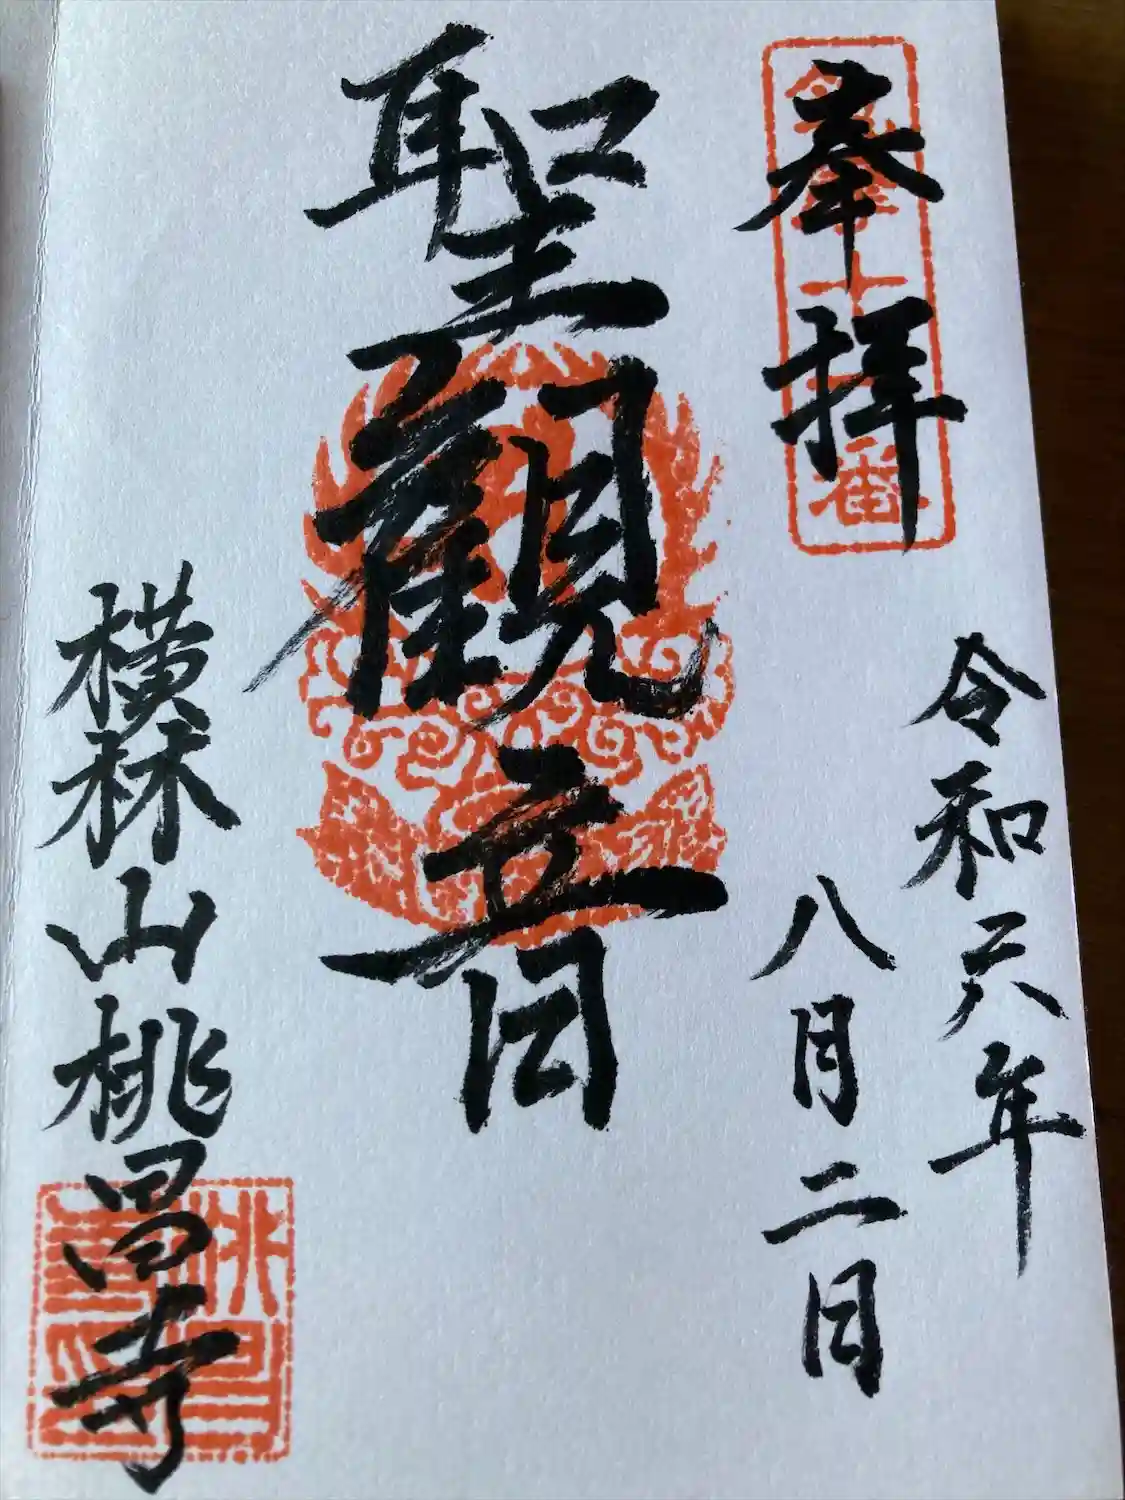 奉拝
令和六年
八月二日
聖觀音
横林山桃昌寺